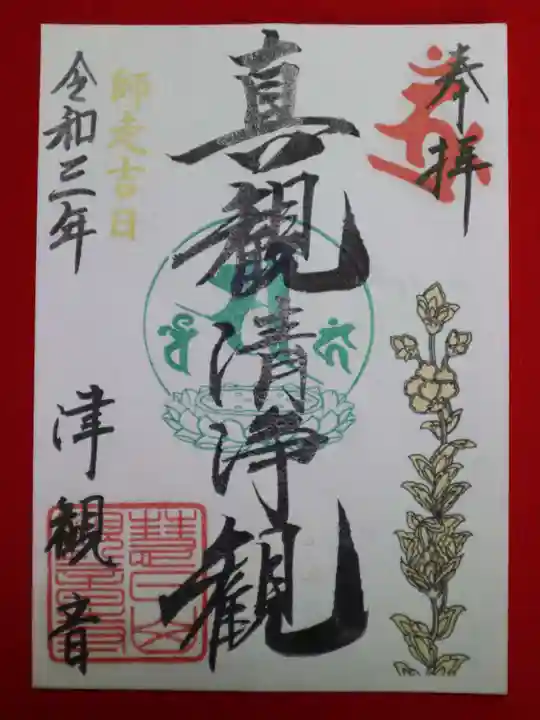 奉拝
真観清浄観
師走吉日
令和三年
津観音